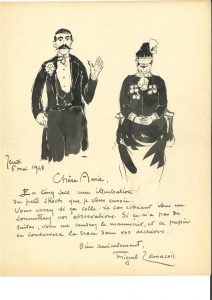 Jeudi
6 mai 1948
Chère Amie,
En cinq sec une illustration
du petit sketch que je vous envoie.
Vous verrez si ça colle. Le cas échéant vous me
soumettrez vos observations. Si ça n'a pas de
suites, vous me rendrez le manuscrit, et ce papier
en conservera la trace dans vos archives.
Bien amicalement,
Miguel Zamacoïs